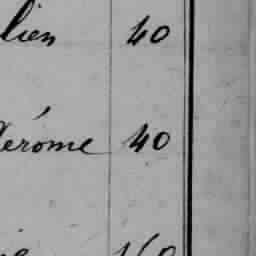 lien 40
Jérome 40